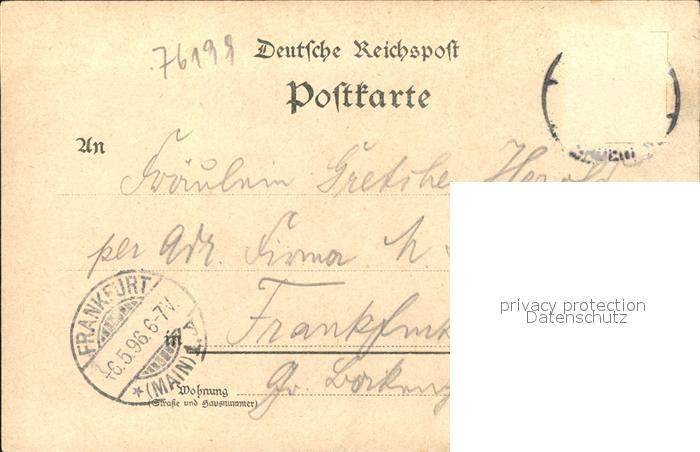 76199
Deutsche Reichspost
Postkarte
An
Fräulein Gretchen Herold
per Adr. Firma M.
in Frankfurt
Wohnung
(Straße und Hausnummer)
Gr.
FRANKFURT
-6.5.96.6-7V.
* (MAIN) 1
privacy protection
Datenschutz